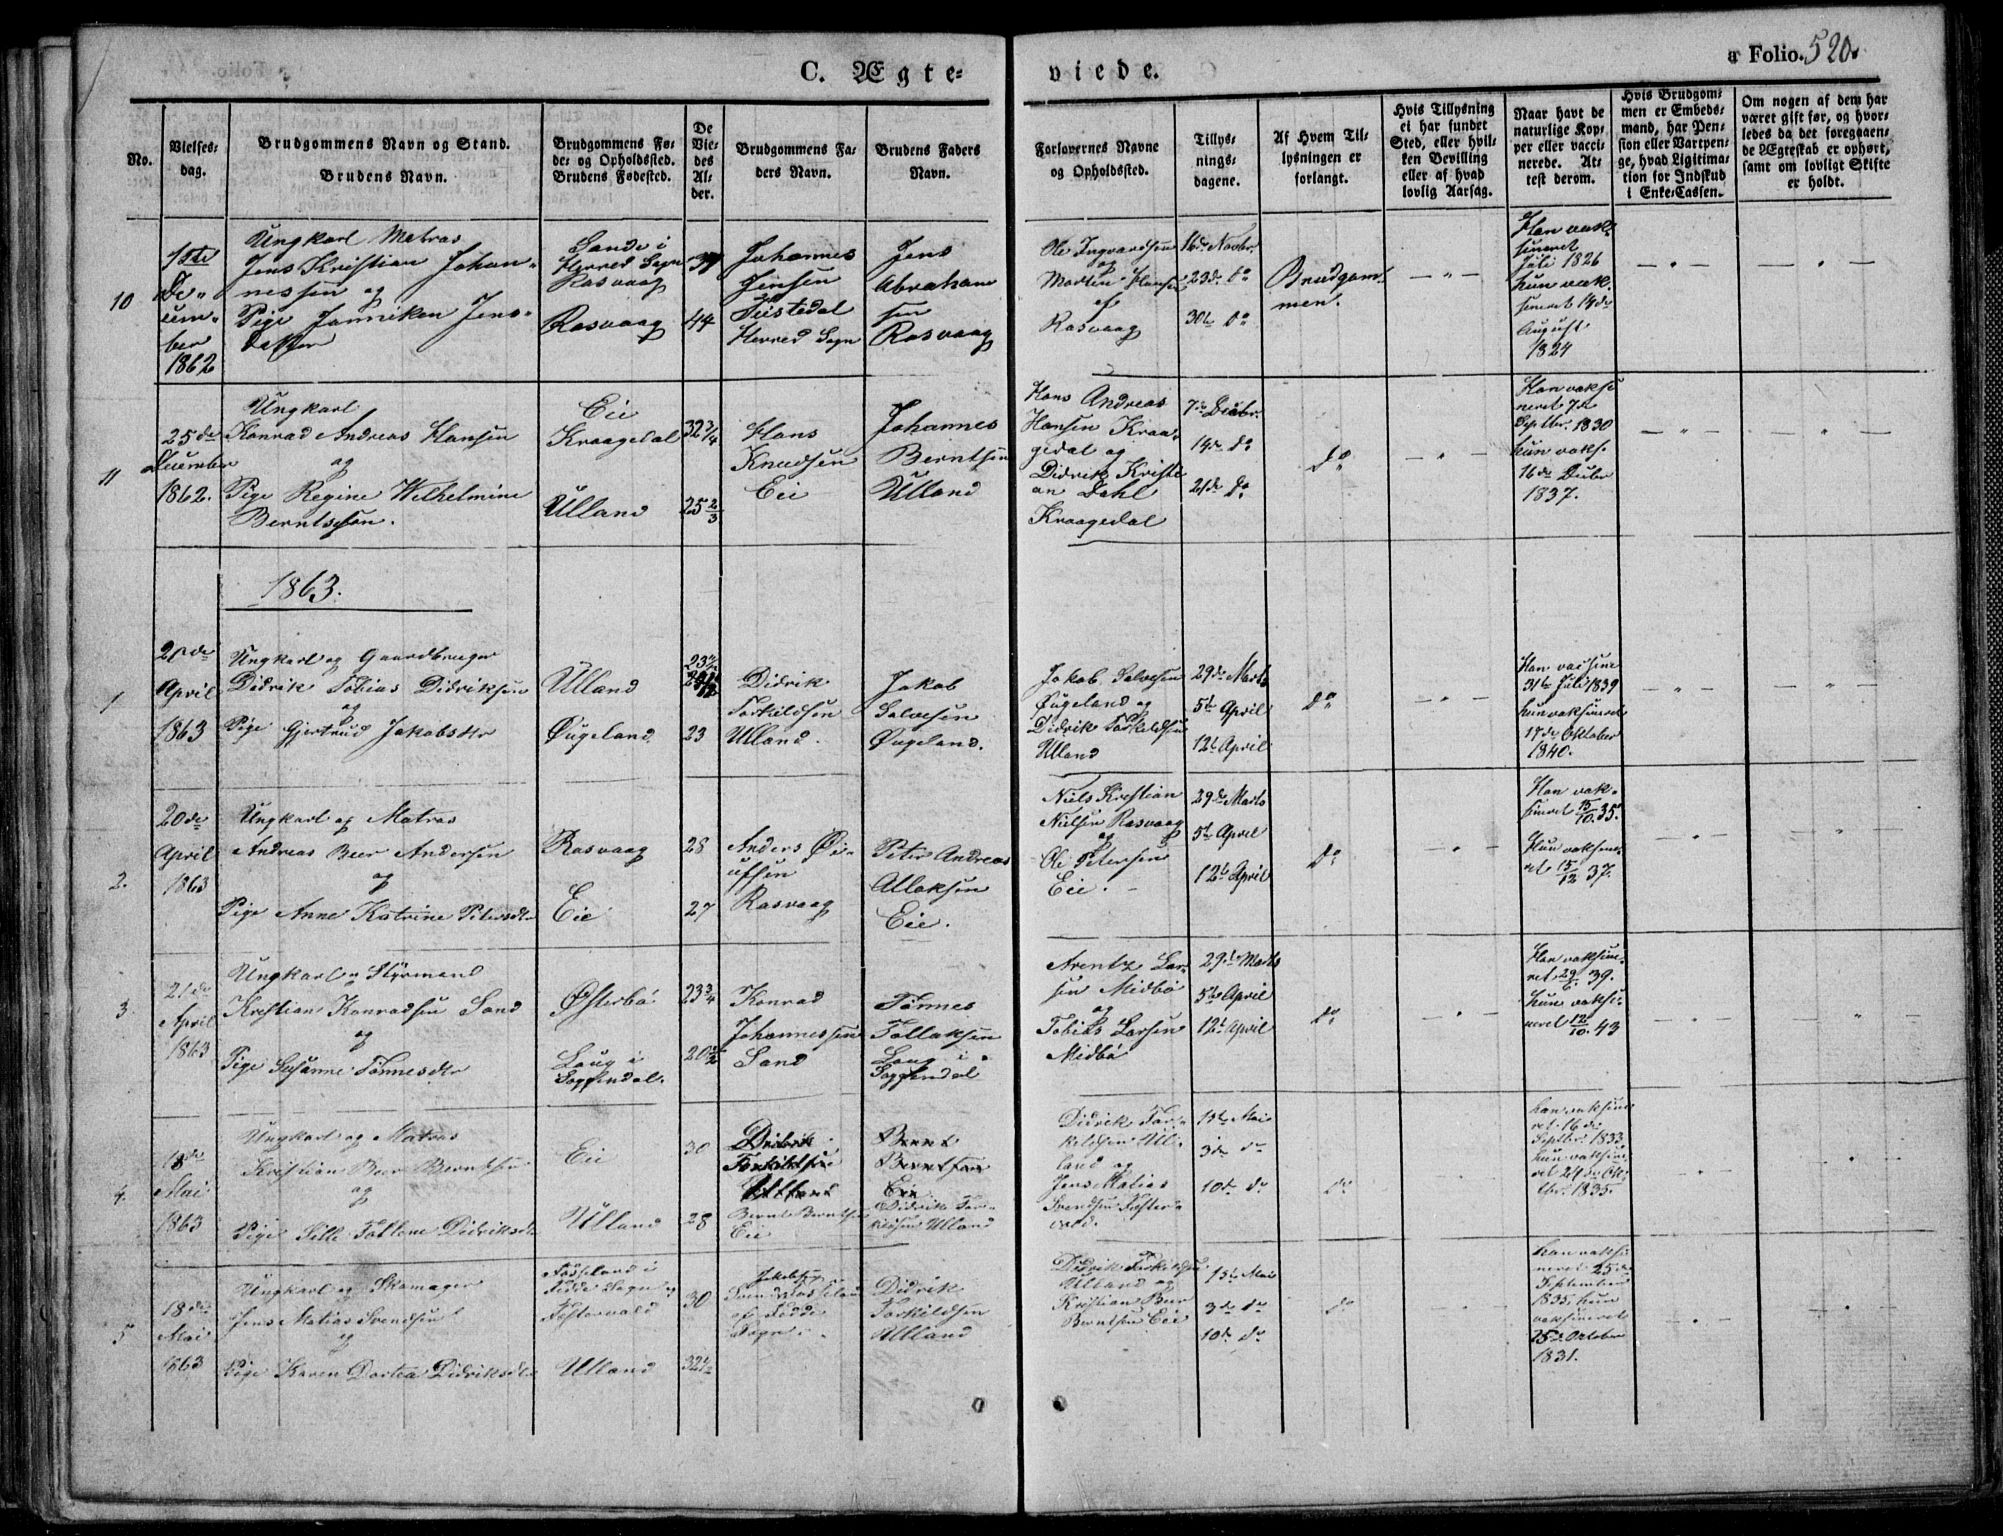 C. Ægte=
viede.
a Folio. 520.
No.
Vielses-
dag.
Brudgommens Navn og Stand.
Brudens Navn.
Brudgommens Fø-
de- og Opholdssted.
Brudens Fødested.
De
Vie-
des
Al-
der.
Brudgommens Fa-
ders Navn.
Brudens Faders
Navn.
Forlovernes Navne
og Opholdssted.
Tillys-
nings-
dagene.
Af Hvem Til-
lysningen er
forlangt.
Hvis Tillysning
ei har fundet
Sted, eller hvil-
ken Bevilling
eller af hvad
lovlig Aarsag.
Naar havt de
naturlige Kop-
per eller vacci-
nerede. At-
test derom.
Hvis Brudgom-
men er Embeds-
mand, har Pen-
sion eller Vartpen-
ge, hvad Ligitima-
tion for Indskud
i Enke-Cassen.
Om nogen af dem har
været gift før, og hvor-
ledes da det foregaaen-
de Ægteskab er ophørt,
samt om lovligt Skifte
er holdt.
10
1ste
De-
cem-
ber
1862
Ungkarl Matros
Jens Kristian Johan-
nessen og
Pige Janniken Jens-
datter
Sande i
Herred Sogn
Rasvaag
Rasvaag
37
44
Johannes
Jensen
Tistedal
Herred Sogn
Jens
Abraham
sen
Rasvaag
Ole Ingvardsen
og
Martin Hansen
af
Rasvaag
16de Novbr.
23de do
30te do
Brudgom-
men.
Han vak-
sineret
Juli 1826
hun vak-
sineret 14de
August
1824
11
25de
December
1862.
Ungkarl
Konrad Andreas Hansen
og
Pige Regine Wilhelmine
Berntsen.
Eie
Kraagedal
Ulland
32 3/4
25 2/3
Hans
Knudsen
Eie
Johannes
Berntsen
Ulland
Hans Andreas
Hansen Kraa-
gedal og
Didrik Kristi
an Dahl
Kraagedal
7de Decbr.
14de do
21de do
do
Han vaksi
neret 7de
Septbr. 1830
hun vaks.
16de Decbr
1837.
1863.
1
April
1863
Ungkarl og Gaardbruger
Didrik Tobias Didriksen
og
Pige Gjertrud Jakobsdtr
Ulland
Øugeland
23
Didrik
Torkildsen
Ulland.
Jakob
Salvesen
Øugeland.
Jakob Salvesen
Øugeland og
Didrik Torkildsen
Ulland
29de Marts
5te April
12te April
do
Han vaksine
31te Juli 1839
hun vaksineret
17de Oktober
1840.
2.
20de
April
1863
Ungkarl og Matros
Andreas Beer Andersen
og
Pige Anne Katrine Petersdtr
Rasvaag
Eie
28
27
Anders Øi-
ufsen
Rasvaag
Peter Andreas
Allaksen
Eie.
Niels Kristian
Nielsen Rasvaag
og
Ole Petersen
Eie.
29de Marts
5te April
12te April
do
Han vak-
sineret 15/10 35.
Hun vaksine-
ret 15/12 37.
3
21de
April
1863
Ungkarl og Styrmand
Kristian Konradsen Sand
og
Pige Susanne Tönnesdtr
Østerbö
Laug i
Soggendal.
23 3/4
20 1/2
Konrad
Johannessen
Sand
Tönnes
Tollaksen
Laug i
Soggendal
Arentz Lar-
sen Midbö
og
Tobias Larsen
Midbö
29de Marts
5te April
12te April
do
Han vaksine-
ret 29/6. 39.
hun vaksi-
neret 12/10. 43
4.
18de
Mai
1863
Ungkarl og Matros
Kristian Beer Berntsen
og
Pige Sille Tallene Didriksdtr
Eie
Ulland
30
28
Didrik
Torkildsen
Ulland
Bernt Berntsen
Eie
Bernt
Berntsen
Eie
Didrik Tor-
kildsen Ulland
Didrik Tor-
kildsen Ul-
land og
Jens Matias
Svendsen Fester-
vold.
1ste Mai
3de do
10de do
do
han vaksine
ret 16de
Septbr. 1833
hun vaksine-
ret 24de Ok-
tbr. 1835.
5
18de
Mai
1863
Ungkarl og Skomager
Jens Matias Svendsen
og
Pige Karen Dortea Didriksdtr
Fedde Sogn og
Festervold
Ulland
30
32 1/2
Jakobsen
af Fedde
Sogn.
Didrik
Torkildsen
Ulland
Didrik Torkildsen
Ulland og
Kristian Beer
Berntsen Eie
1ste Mai
3de do
10de do
do
han vaksi
neret 25de
September
1835, hun
vaksineret
25de Oktober
1831.